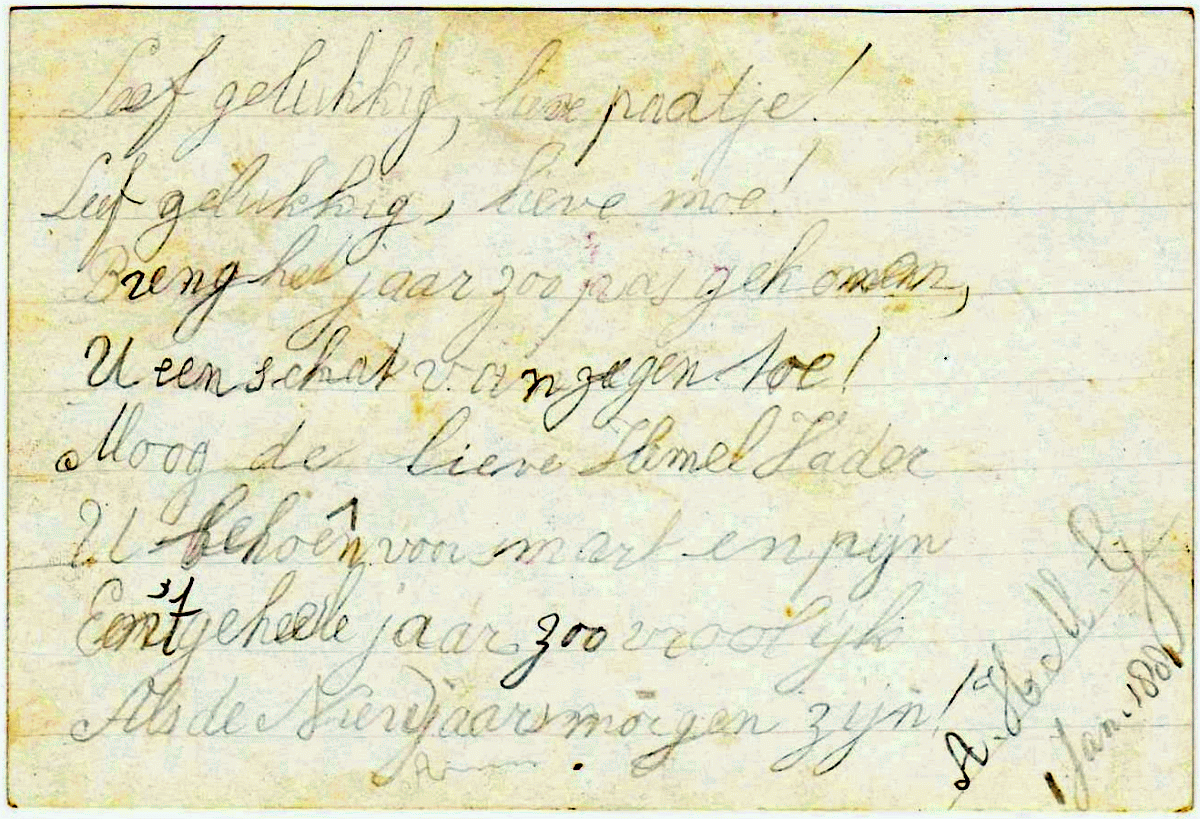 Leef gelukkig, lieve paatje!
Leef gelukkig, lieve moe!
Breng het jaar zoo pas gekomen,
U een schat van zegen toe!
Moog de lieve Hemel Vader
U behoên voor smart en pijn
En 't geheele jaar zoo vroolijk
Als de Nieuwjaarsmorgen zijn!
1 Jan. 188